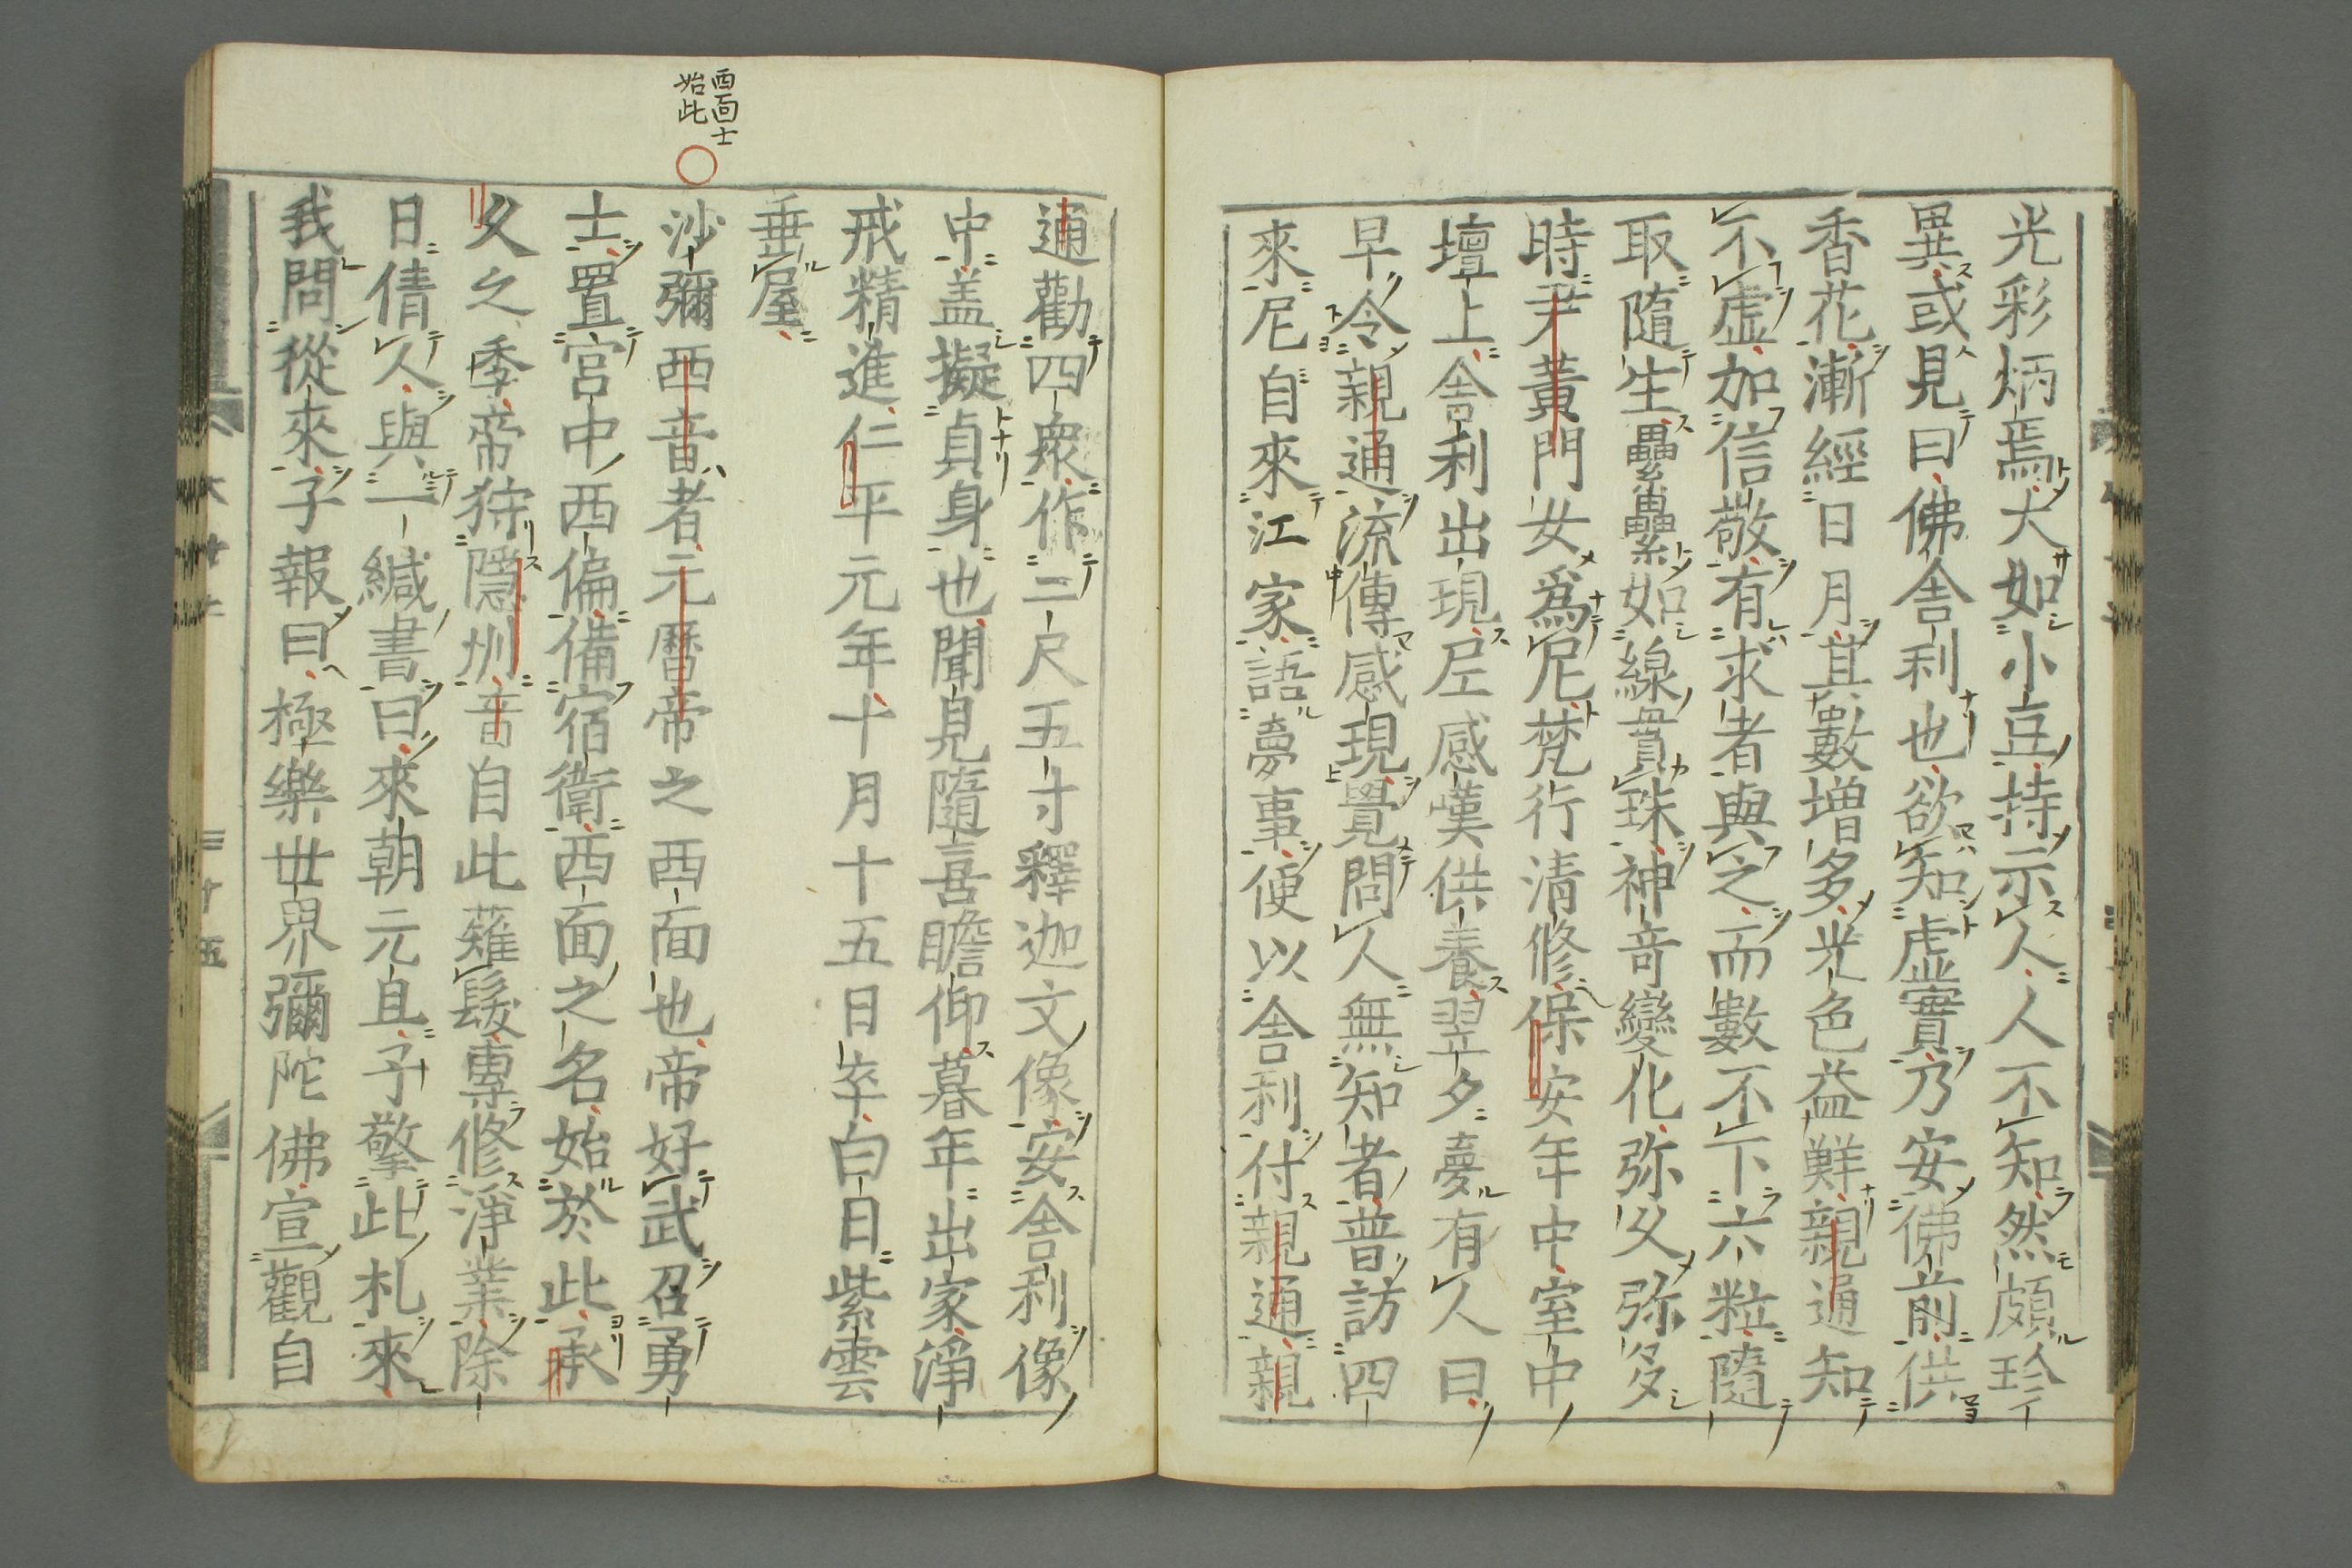 光彩炳焉大如小豆持示人人不知然頗珍
異或見曰佛舎利也欲知虚實乃安佛前供
香花漸經日月其數増多光色益鮮親通知
不虚加信敬有求者與之而數不下六粒隨
取隨生纍纍如線貫珠神竒變化弥久弥多
時尹黃門女爲尼梵行清修保安年中室中
壇上舎利出現尼感嘆供養翌夕夢有人曰
早令親通流傳感現覺問人無知者普訪四
來尼自來江家語夢事便以舎利付親通親
西面士
始此
通勸四衆作三尺五寸釋迦文像安舎利像
中盖擬貞身也聞見隨喜瞻仰暮年出家淨
戒精進仁平元年十月十五日卒白日紫雲
垂屋
沙彌西音者元曆帝之西面也帝好武召勇
士置宮中西偏備宿衛西面之名始於此承
久之季帝狩隱州音自此薙髮專修淨業除
日倩人與一緘書曰來朝元旦予擎此札來
我問從來子報曰極樂世界彌陀佛宣觀自